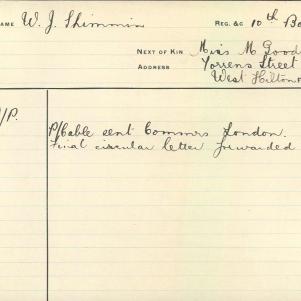 NAME W. J. Shimmin REG. &c 10th Ba
NEXT OF KIN Miss M Good
ADDRESS Torrens Street
West Hilton
/P.
P/Cable sent Commrs London.
Final circular letter forwarded